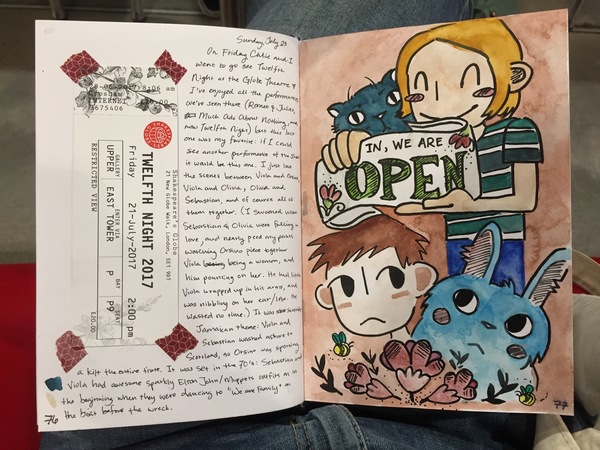 Sunday July 23
On Friday Chlie and I
went to go see Twelfth
Night at the Globe Theatre &
I've enjoyed all the performances
we've seen there (Romeo & Juliet
Much Ado About Nothing, and
now Twelfth Night) but this last
one was my favorite: if I could
see another performance of the show
it would be this one. I just love
the scenes between Viola and Orsino,
Viola and Olivia, Olivia and
Sebastian, and of course all of
them together. (I swooned when
Sebastian & Olivia were falling in
love, and nearly peed my pants
watching Orsino piece together
Viola being a woman, and
him pouncing on her. He had little
Viola wrapped up in his arms, and
was nibbling on her ear/
wasted no time.) It was
Jamaican theme: Viola and
Sebastian washed ashore to
Scotland, so Orsino was sporting
a kilt the entire time. It was set in the 70's: Sebastian and
Viola had awesome sparkly Elton John/Muppets outfits on in
the beginning when they were dancing to "We are Family" on
the boat before the wreck.
76
8:06 am
INTERNET
3675406
SHAKESPEARE'S GLOBE
Shakespeare's Globe
21 New Globe Walk, London, SE1 9DT
TWELFTH NIGHT 2017
Friday 21-July-2017 2:00 pm
GALLERY ENTER VIA BAY SEAT
UPPER EAST TOWER P P9
RESTRICTED VIEW £20.00
IN, WE ARE
OPEN
77